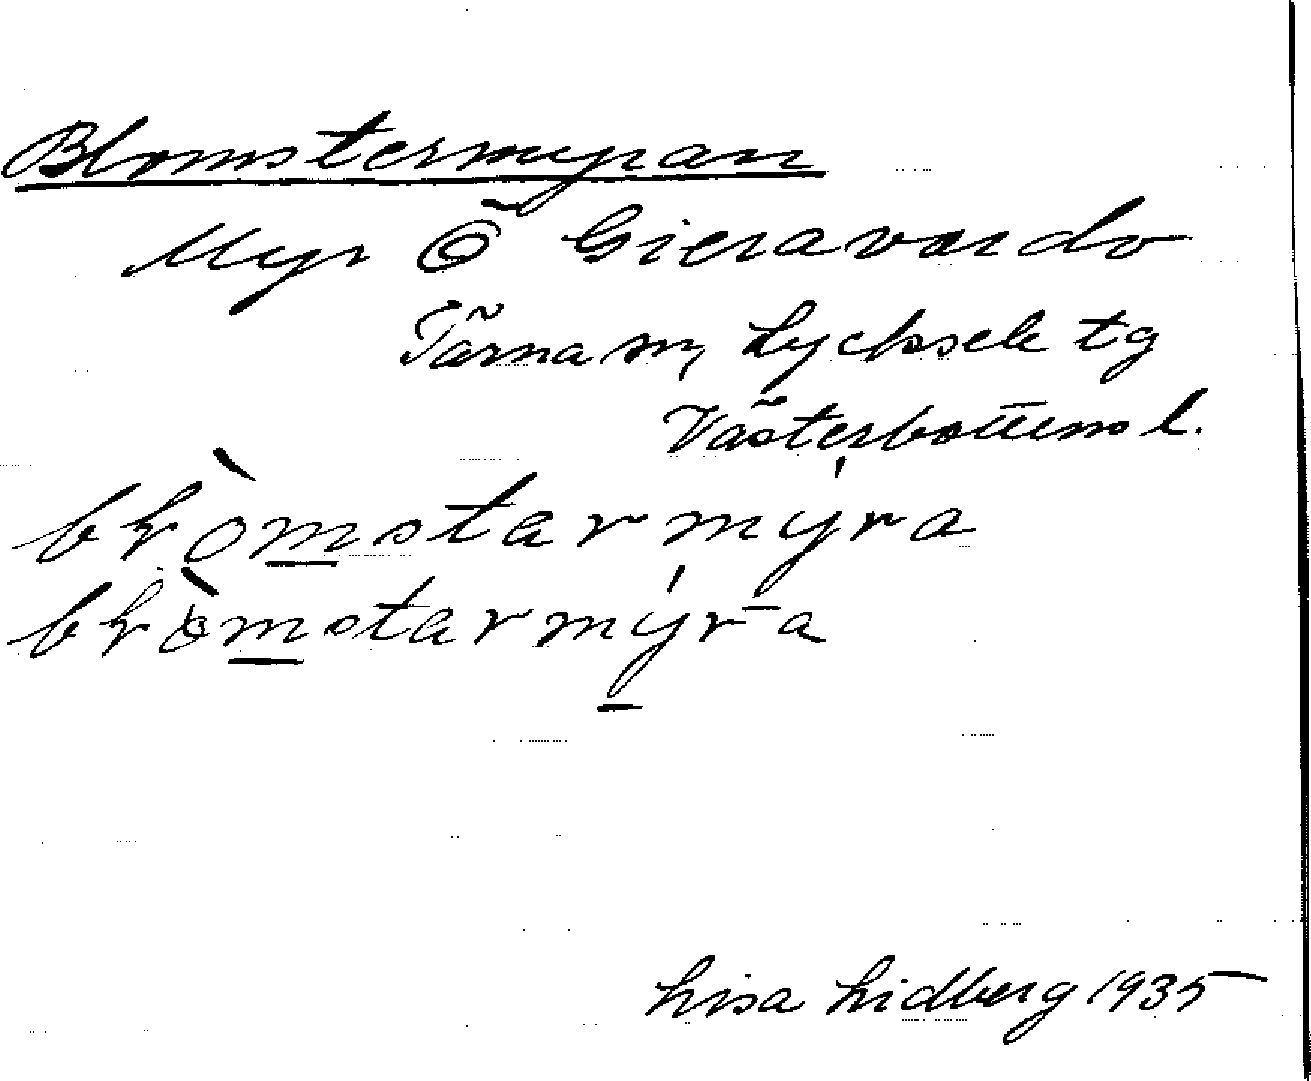 Blomstermyran
Myr Ö Gieravardo
Tärna sn, Lycksele tg
Västerbottens l.
brò̀mstarmýra
brò̀mstarmýr̄a
Lisa Lidberg 1935